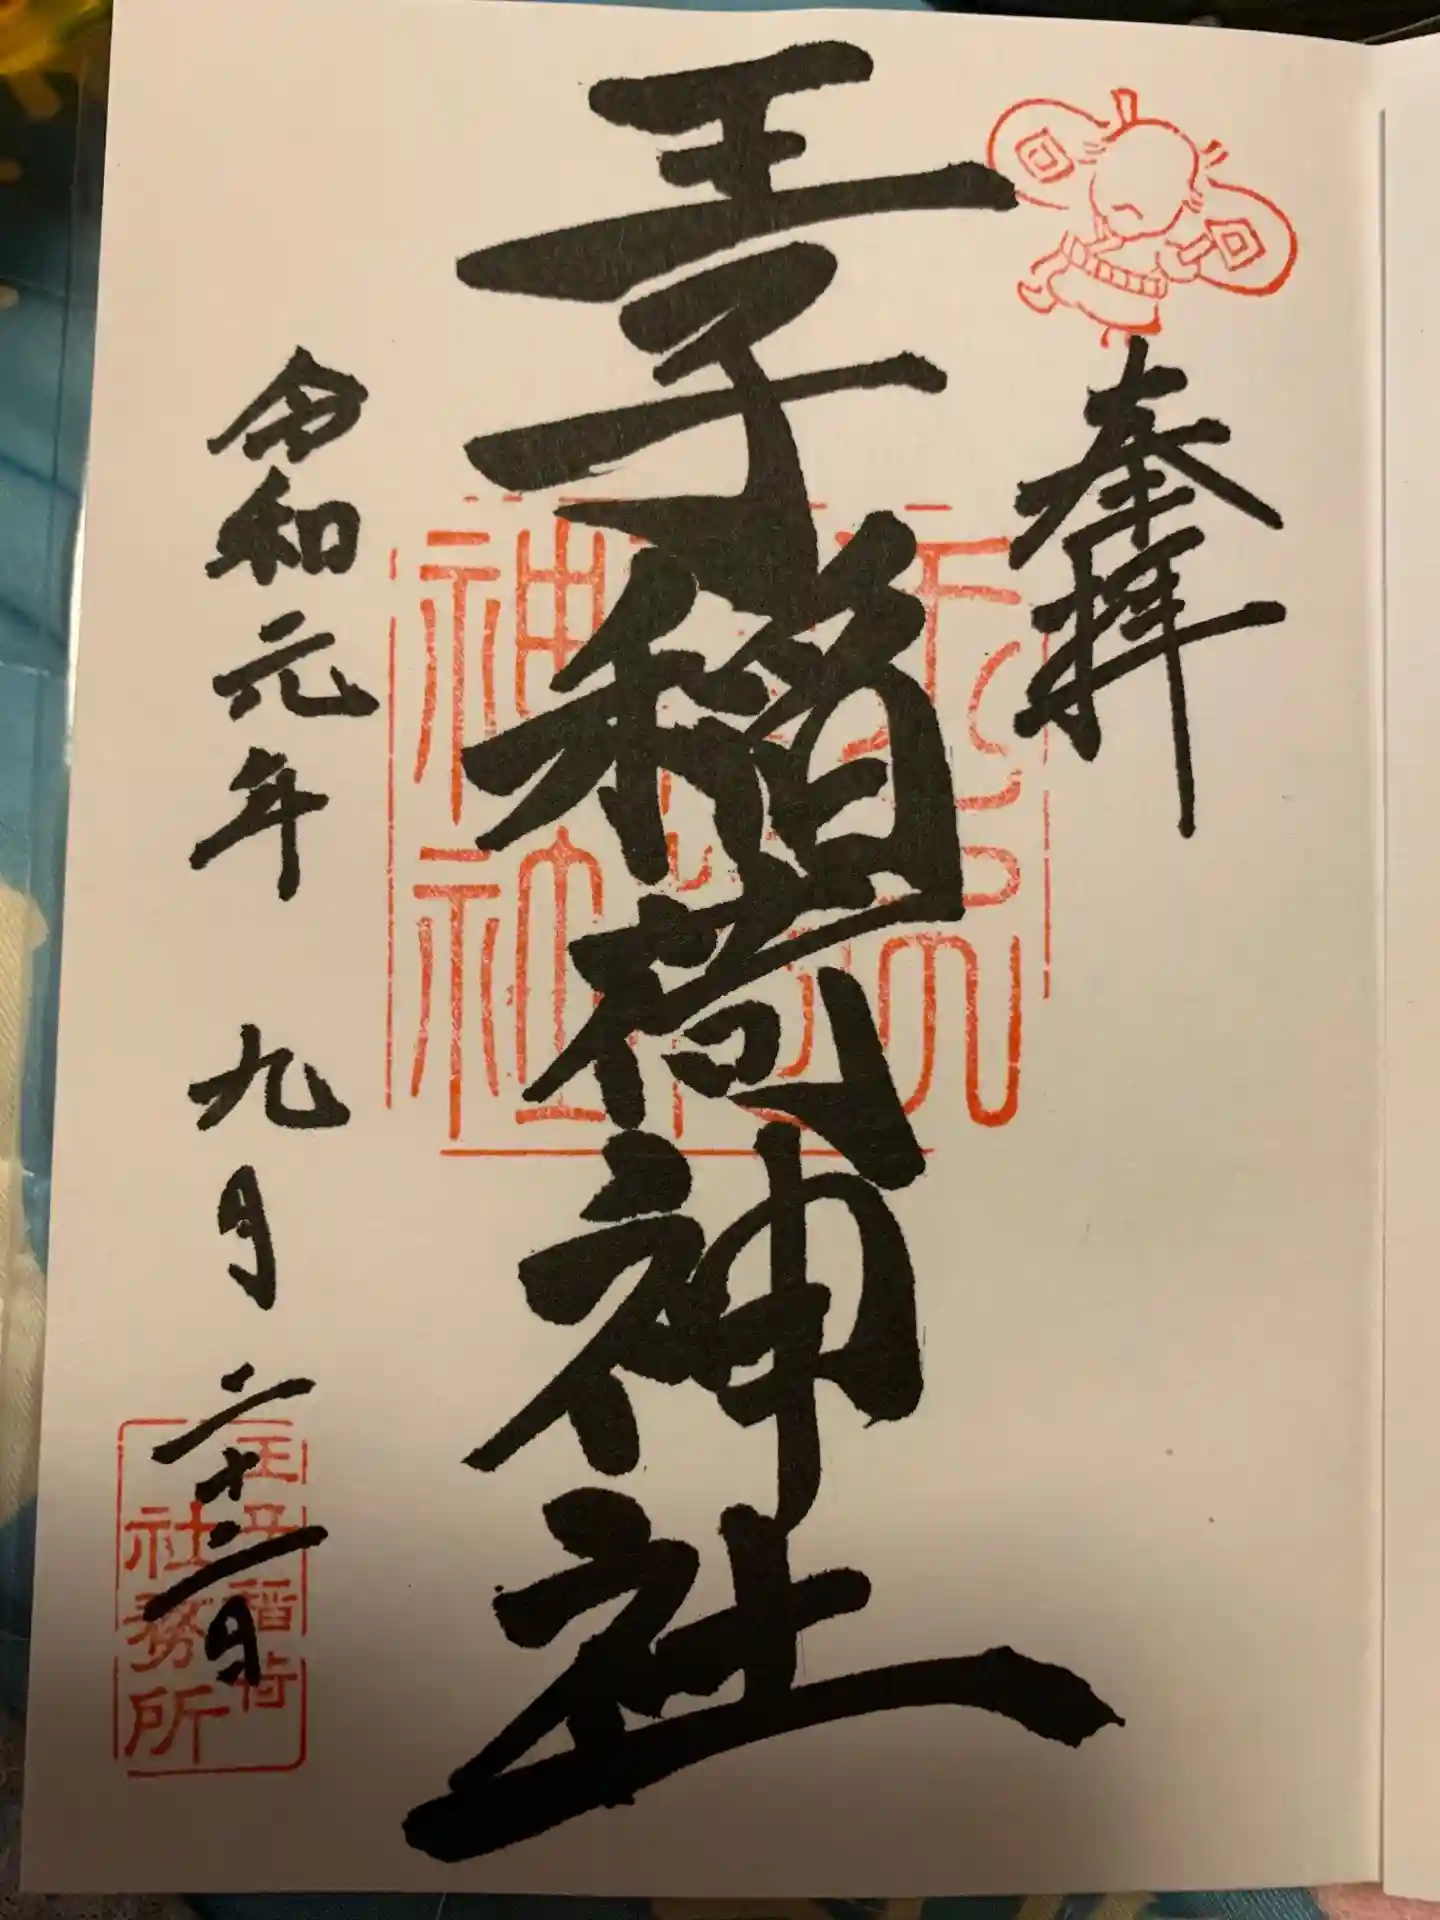 奉拝
王子稲荷神社
令和元年 九月 二十二日
神社
王子稲荷
社務所